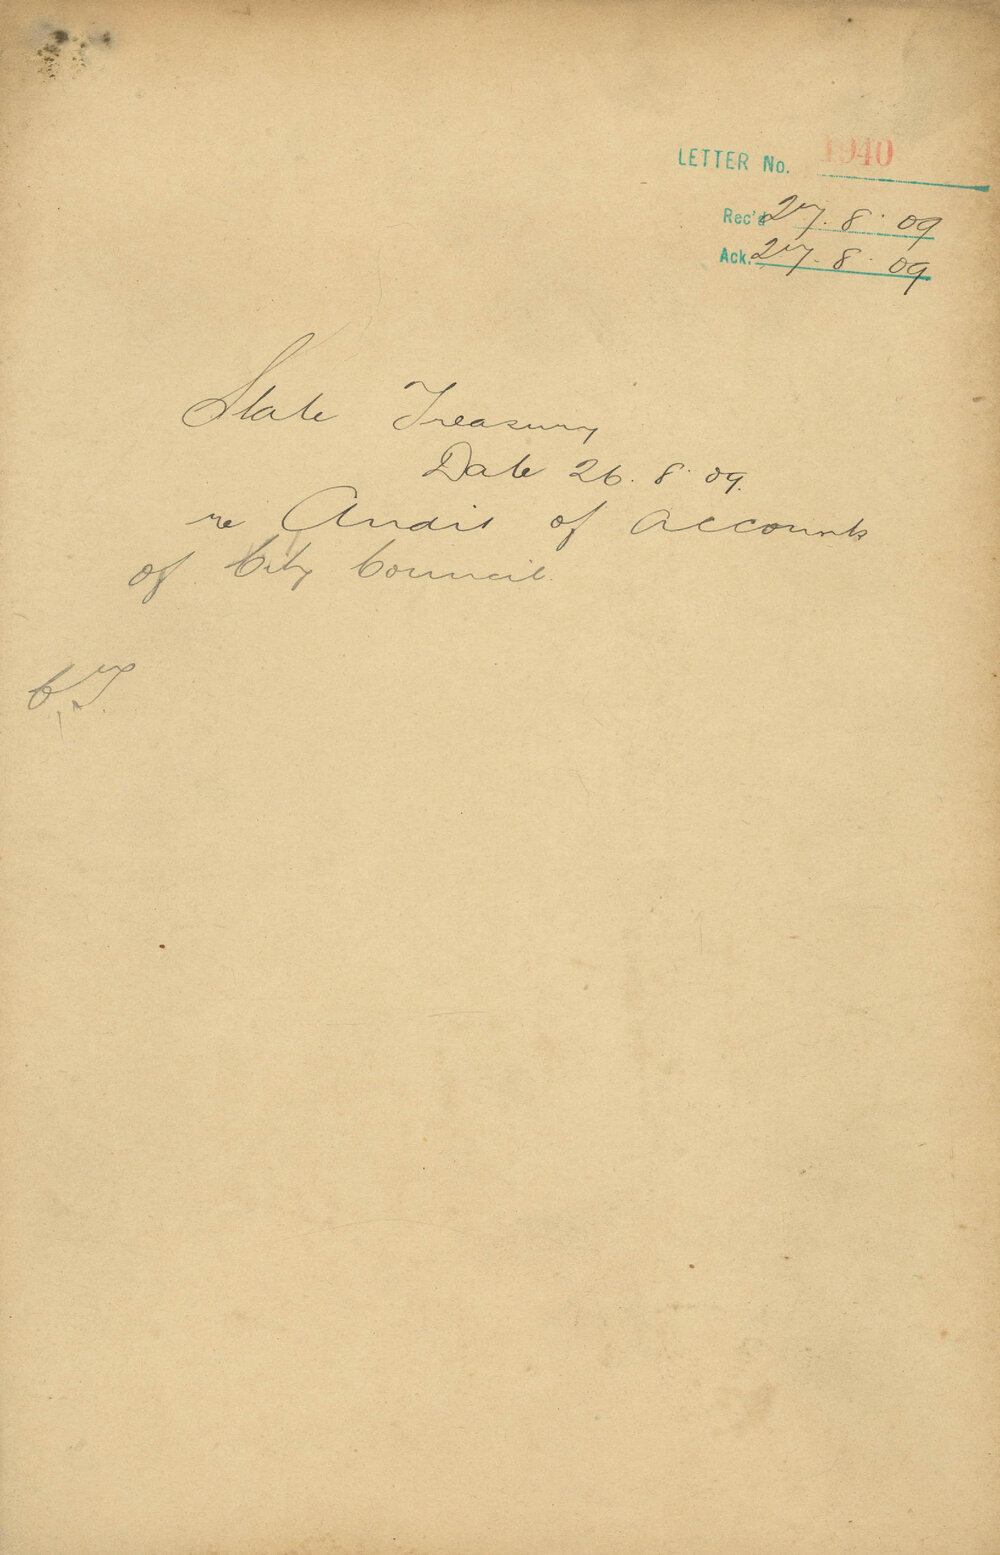 LETTER No. 1940
Rec'd 27. 8. 09
Ack. 27. 8. 09
State Treasury
Date 26. 8. 09.
re Audit of accounts
of City Council.